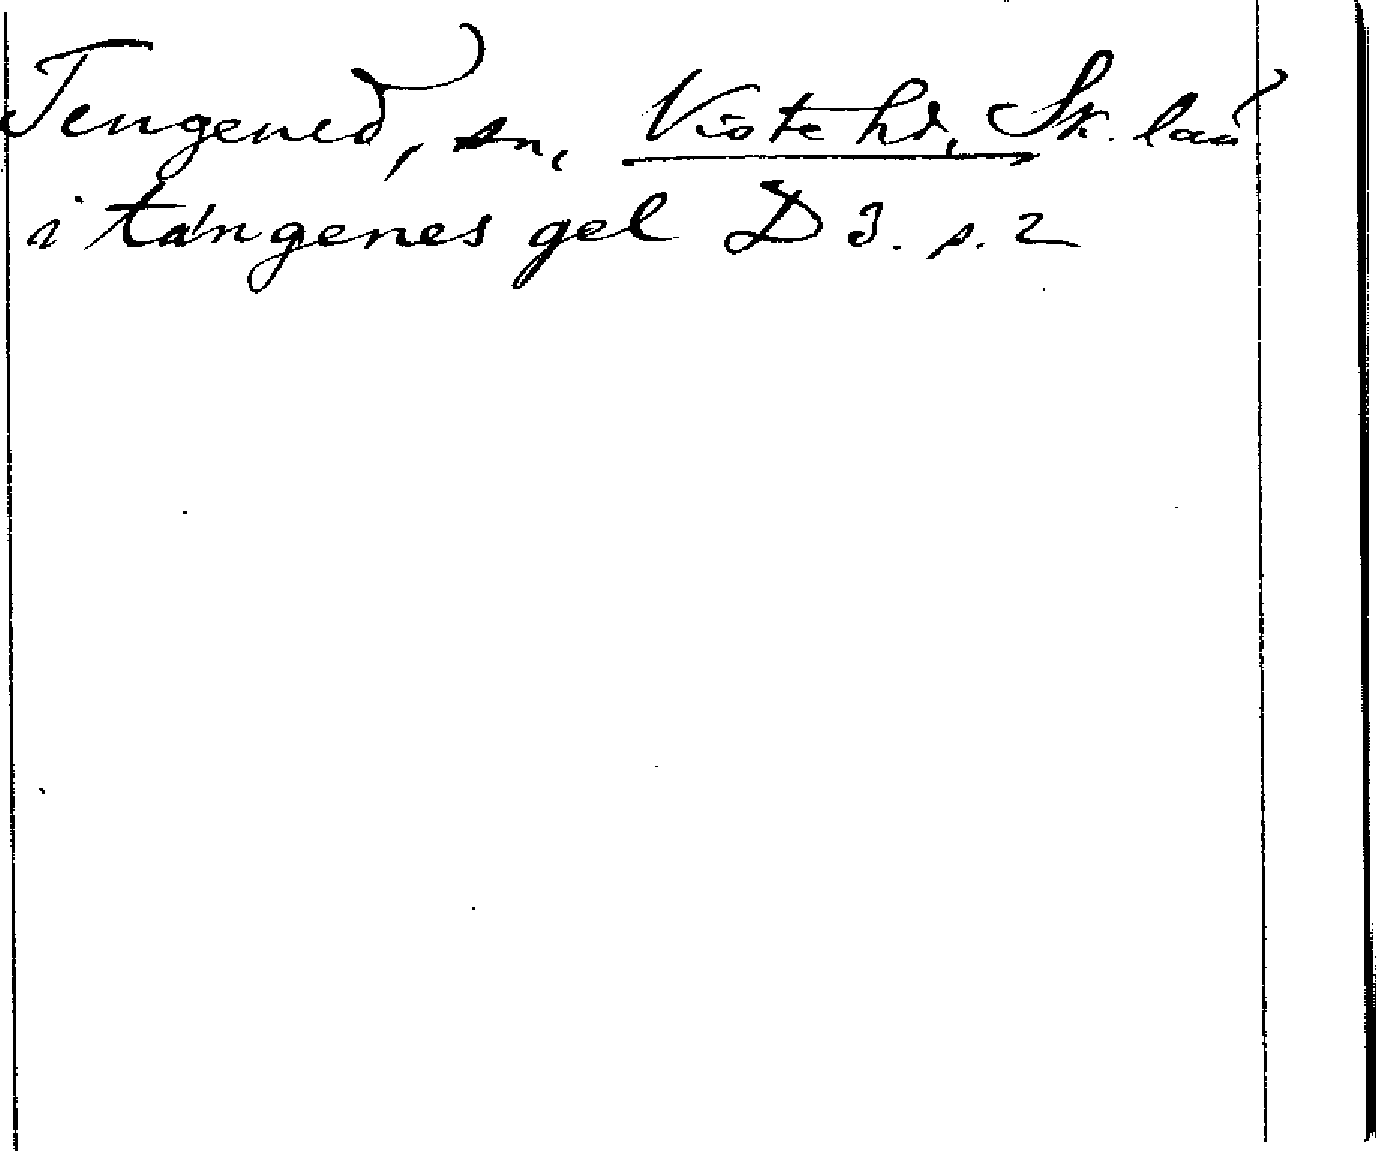 Tengened, sn, Viste hd, Sk. län
i tángenes gel D 3. s. 2